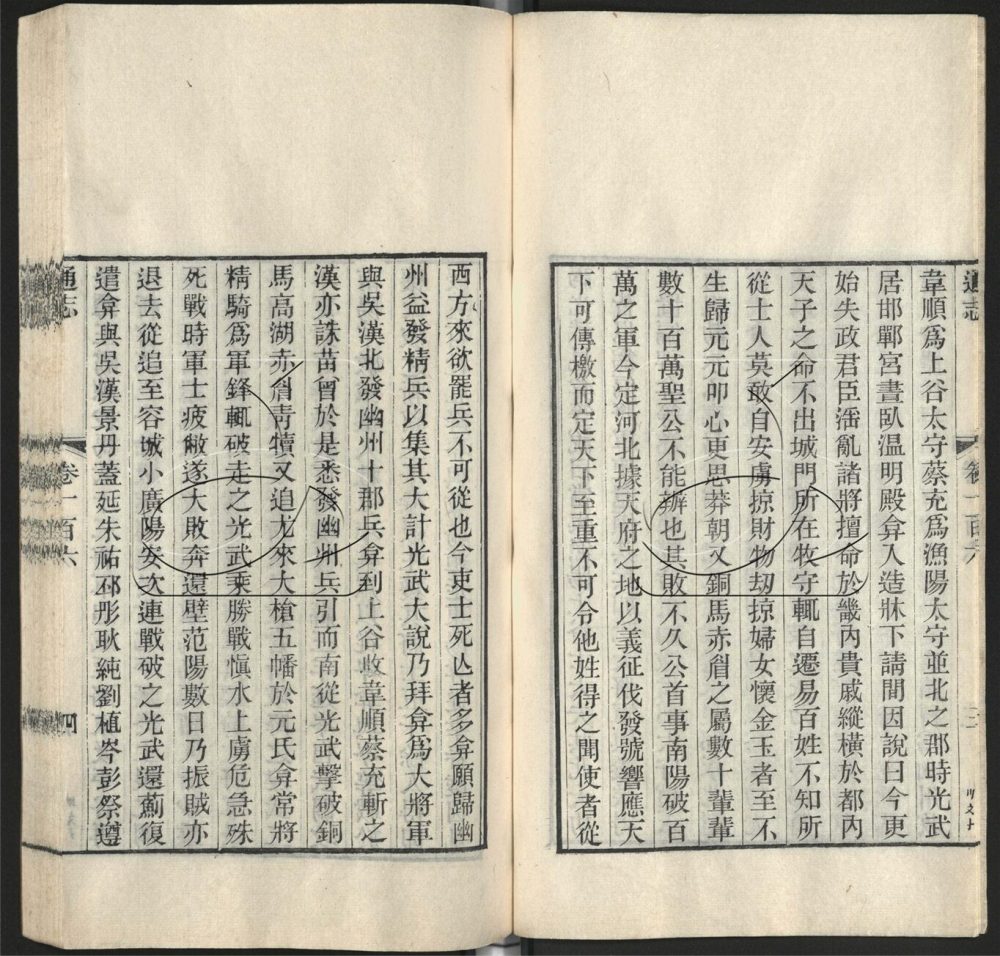 韋順爲上谷太守蔡充爲漁陽太守並北之郡時光武
居邯鄲宮晝臥温明殿弇入造牀下請間因説曰今更
始失政君臣淫亂諸將擅命於畿内貴戚縱横於都内
天子之命不出城門所在牧守輒自遷易百姓不知所
從士人莫敢自安虜掠財物刧掠婦女懷金玉者至不
生歸元元叩心更思莽朝又銅馬赤眉之屬數十輩輩
數十百萬聖公不能辦也其敗不久公首事南陽破百
萬之軍今定河北據天府之地以義征伐發號響應天
下可傳檄而定天下至重不可令他姓得之聞使者從
西方來欲罷兵不可從也今吏士死亾者多弇願歸幽
州益發精兵以集其大計光武大說乃拜弇爲大將軍
與吳漢北發幽州十郡兵弇到上谷收韋順蔡充斬之
漢亦誅苗曾於是悉發幽州兵引而南從光武擊破銅
馬高湖赤眉青犢又追尤來大槍五幡於元氏弇常將
精騎爲軍鋒輒破走之光武乘勝戰愼水上虜危急殊
死戰時軍士疲敝遂大敗奔還壁范陽數日乃振賊亦
退去從追至容城小廣陽安次連戰破之光武還薊復
遣弇與吳漢景丹蓋延朱祐邳彤耿純劉植岑彭祭遵
通志
卷一百六
四